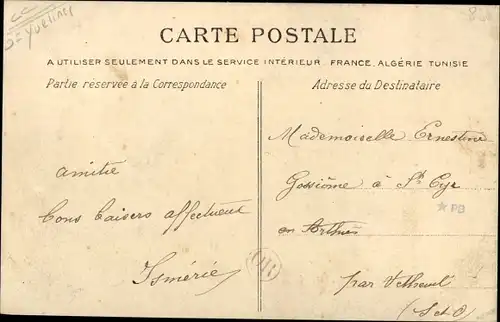 Yvelines
CARTE POSTALE
A UTILISER SEULEMENT DANS LE SERVICE INTÉRIEUR. FRANCE, ALGÉRIE TUNISIE
Partie réservée à la Correspondance
Adresse du Destinataire
Amitié
bons baisers affectueux
Ismérie
OR
Mademoiselle Ernestine
Gossiôme à St Cyr
en Arthies
PB
par Vetheuil
(S et O)